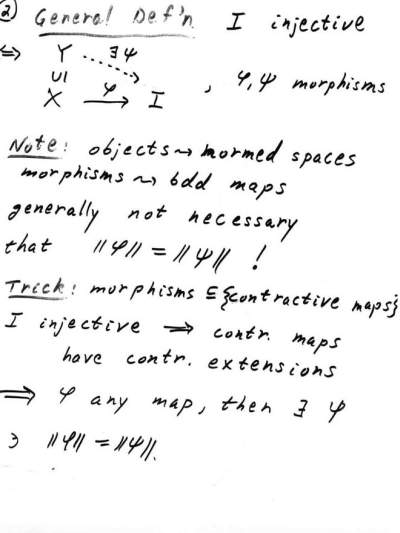 ② General Def'n I injective
⇔ Y ∃ψ
∪|
X φ→ I , φ, ψ morphisms
Note: objects ⇝ normed spaces
morphisms ⇝ bdd maps
generally not necessary
that ||φ|| = ||ψ|| !
Trick: morphisms ⊆ {contractive maps}
I injective → contr. maps
have contr. extensions
⟹ φ any map, then ∃ ψ
∋ ||φ|| = ||ψ||.